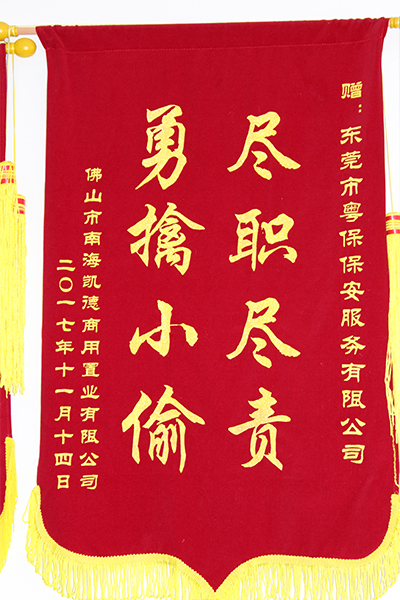 赠：东莞市粤保保安服务有限公司
尽职尽责
勇擒小偷
佛山市南海凯德商用置业有限公司
二〇一七年十一月十四日